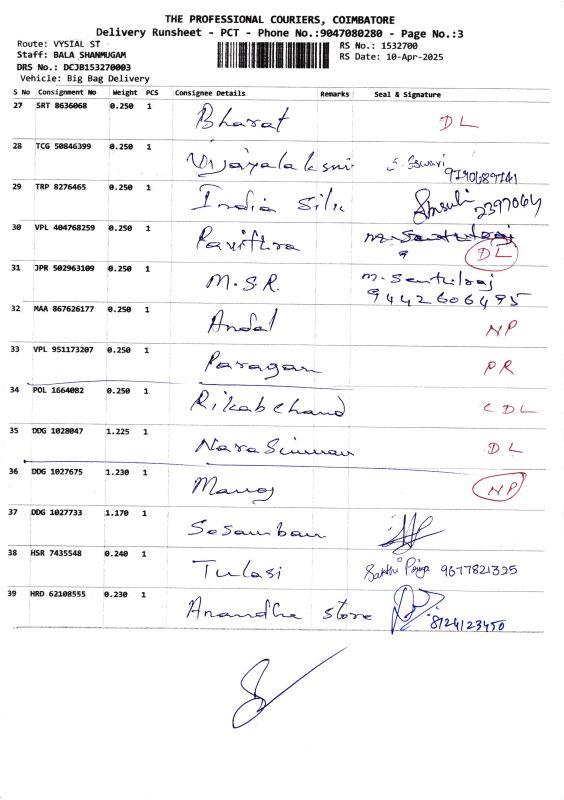 THE PROFESSIONAL COURIERS, COIMBATORE
Delivery Runsheet - PCT - Phone No.:9047080280 - Page No.:3
Route: VYSIAL ST RS No.: 1532700
Staff: BALA SHANMUGAM RS Date: 10-Apr-2025
DRS No.: DCJB153270003
Vehicle: Big Bag Delivery
S No Consignment No Weight PCS Consignee Details Remarks Seal & Signature
27 SRT 8636068 0.250 1 Bharat DL
28 TCG 50846399 0.250 1 Vijayalaksmi S. Eswari
9790689741
29 TRP 8276465 0.250 1 India Silk 2397064
30 VPL 404768259 0.250 1 Pavithra DL
31 JPR 502963109 0.250 1 M.S.R. M. Senthilraj
9442606495
32 MAA 867626177 0.250 1 Andal NP
33 VPL 951173207 0.250 1 Paragan PR
34 POL 1664082 0.250 1 Rikabchand CDL
35 DDG 1028047 1.225 1 Narasimman DL
36 DDG 1027675 1.230 1 Manoj NP
37 DDG 1027733 1.170 1 Sesamban
38 HSR 7435548 0.240 1 Tulasi Sakthi Priya 9677821325
39 HRD 62108555 0.230 1 Anandha store 8124123450